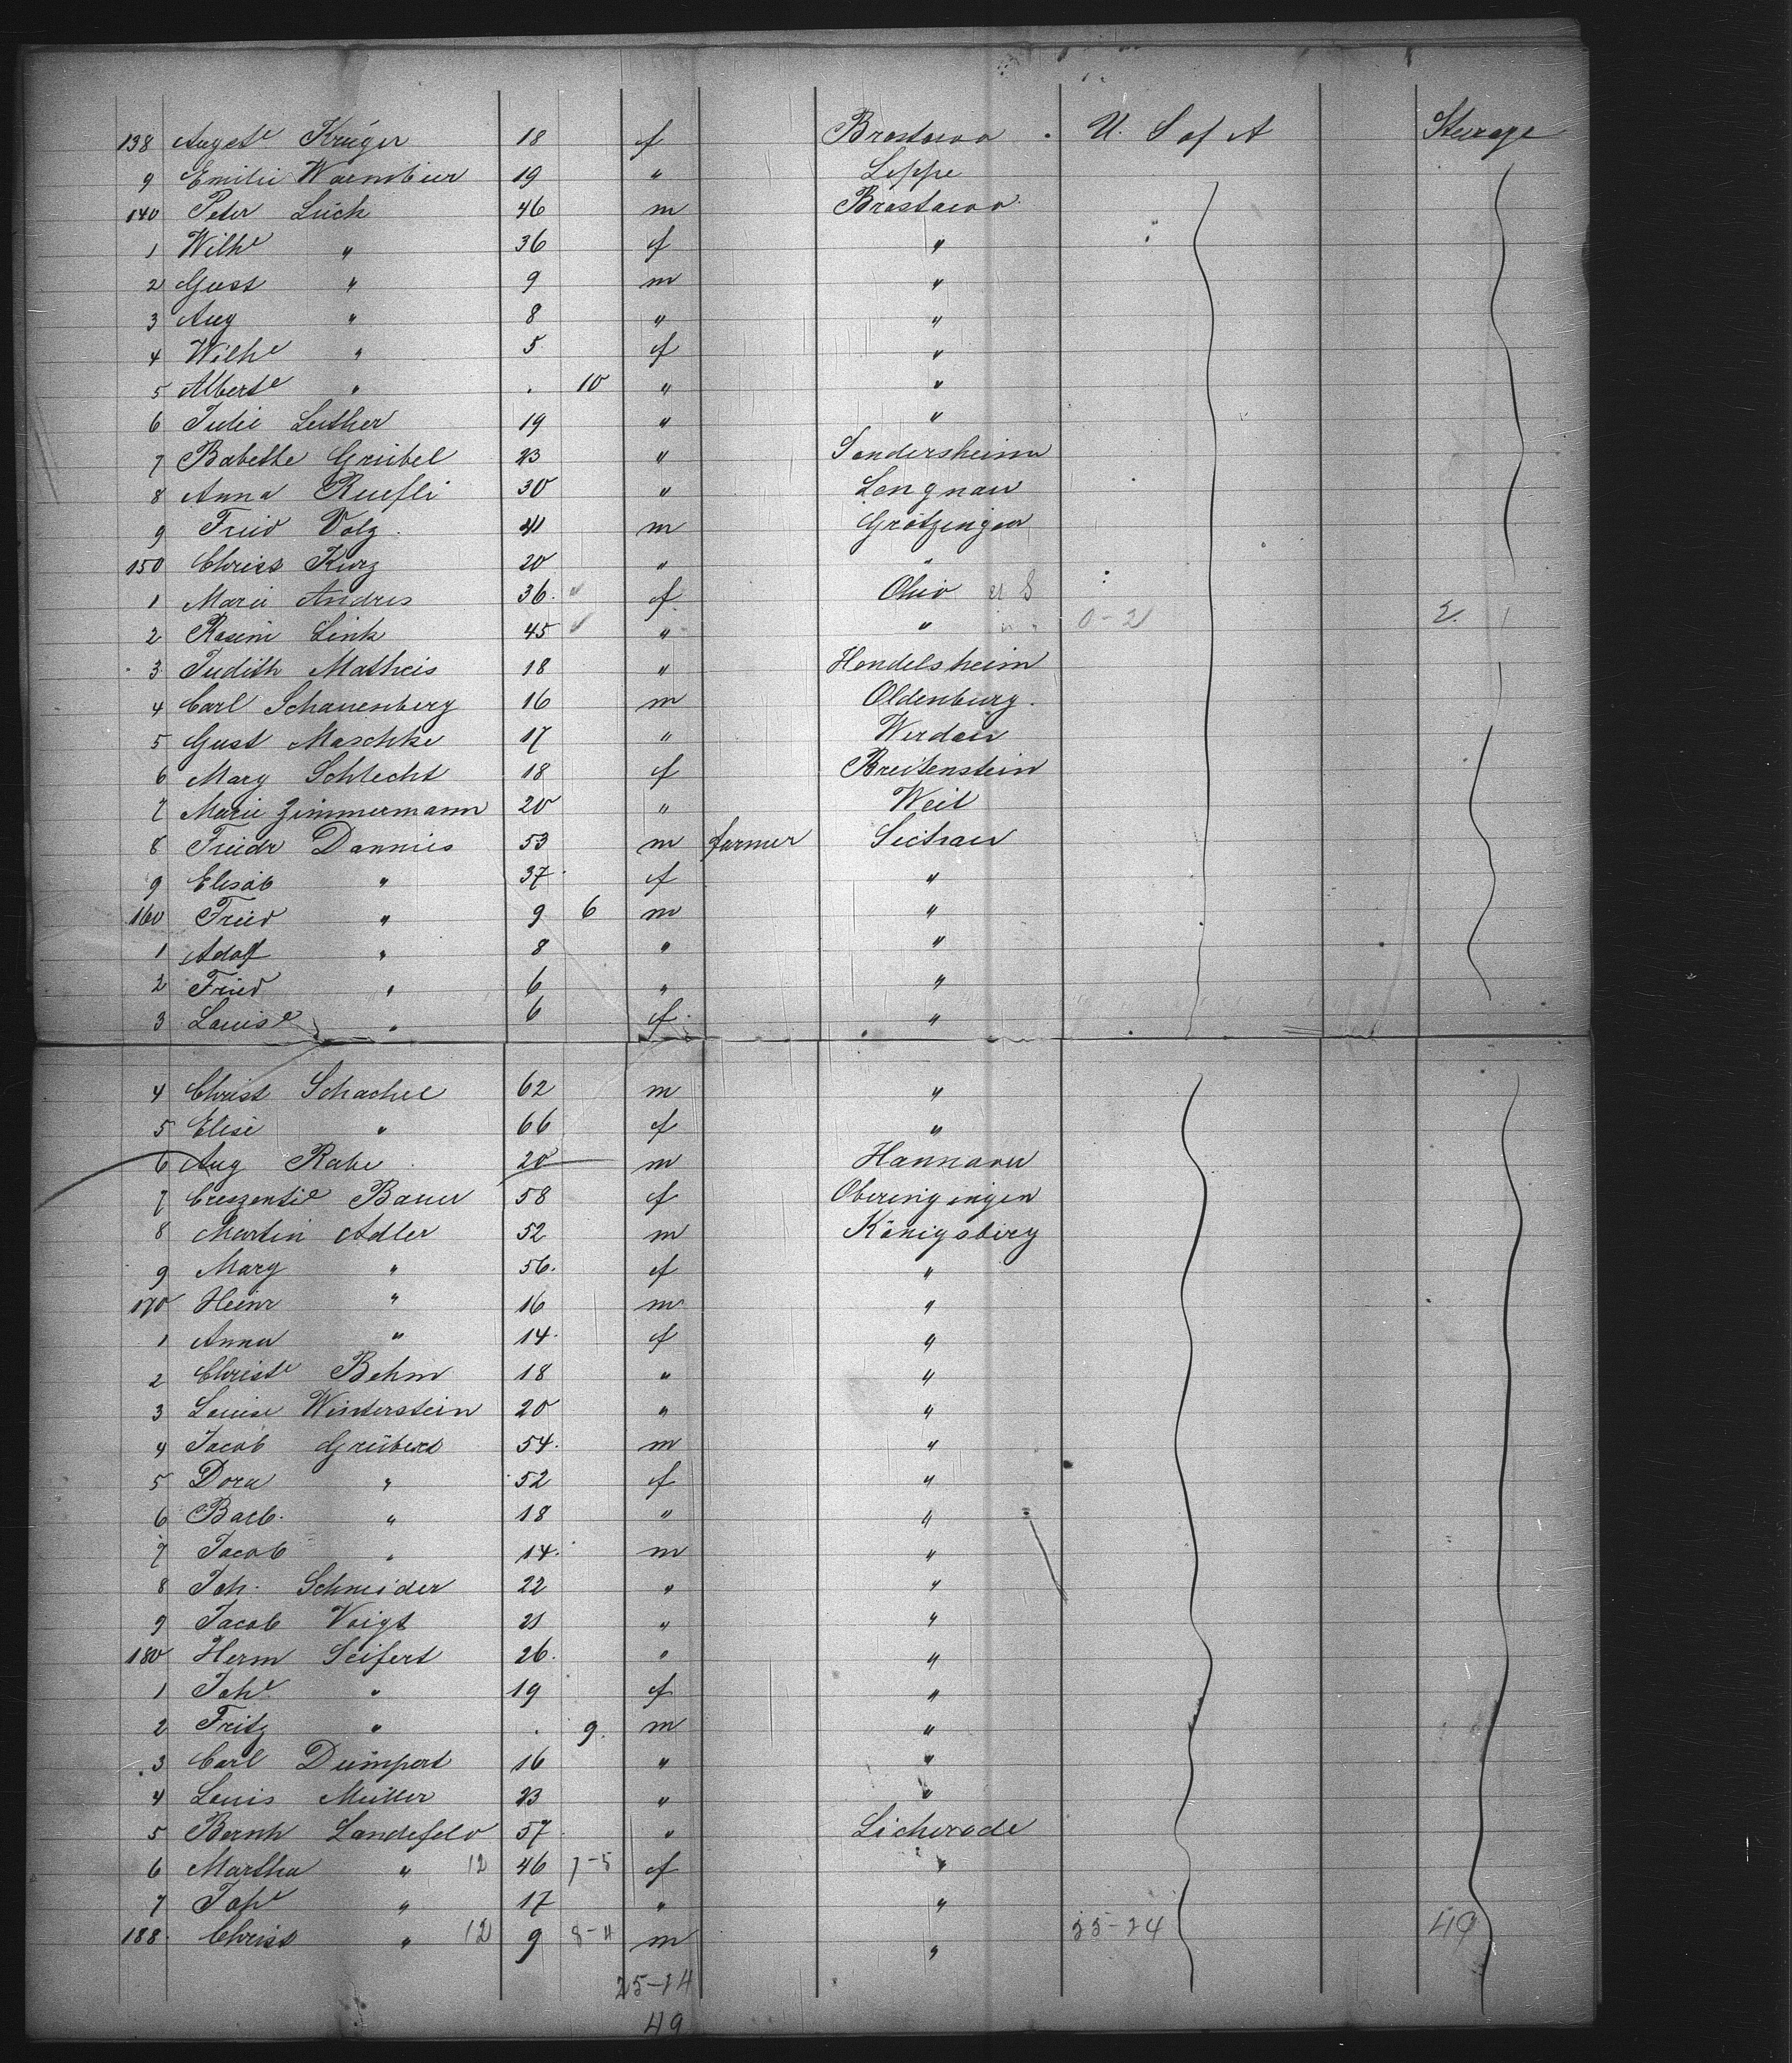 138 August^e Krüger 18 f Brostowo U. S of A Steerage
9 Emilie Warmbier 19 " Leppe
140 Peter Lück 46 m Brostowo
1 Wilh^e " 36 f "
2 Gust " 9 m "
3 Aug " 8 " "
4 Wilh^e " 5 f "
5 Albert^e " . 10 " "
6 Julie Luther 19 " "
7 Babette Grübel 23 " Sondersheim
8 Anna Ruefli 30 " Lengnau
9 Fried Volz 41 m Grötzingen
150 Christ Kurz 20 " "
1 Marie Andres 36 f Ohio U S
2 Rosine Link 45 " " 0-2 2
3 Judith Matheis 18 " Hendelsheim
4 Carl Schauenberg 16 m Oldenburg
5 Gust Maschke 17 " Werdau
6 Marg Schlecht 18 f Breitenstein
7 Marie Zimmermann 20 " Weil
8 Friedr Dannies 53 m farmer Sichau
9 Elisab " 37 f "
160 Fried " 9 6 m "
1 Adolf " 8 " "
2 Fried " 6 " "
3 Louis^e " 6 f "
4 Christ Schachel 62 m "
5 Elise " 66 f "
6 Aug Rabe 20 m Hannover
7 Creszentie Bauer 58 f
8 Martin Adler 52 m Königsberg
9 Marg " 56 f "
170 Heinr " 16 m "
1 Anna " 14 f "
2 Christ^e Behm 18 " "
3 Louise Winterstein 20 " "
4 Jacob Grübert 54 m "
5 Dora " 52 f "
6 Barb. " 18 " "
7 Jacob " 14 m "
8 Joh. Schneider 22 " "
9 Jacob Voigt 21 " "
180 Herm Seifert 26 " "
1 Joh^e " 19 f "
2 Fritz " . 9 m "
3 Carl Dümpert 16 " "
4 Louis Müller 23 " "
5 Bernh Landefeld 57 " Licherode
6 Martha " 12 46 7-5 f "
7 Joh^e " 17 " "
188 Christ " 12 9 8-11 m " 25-24 49
25-24
49